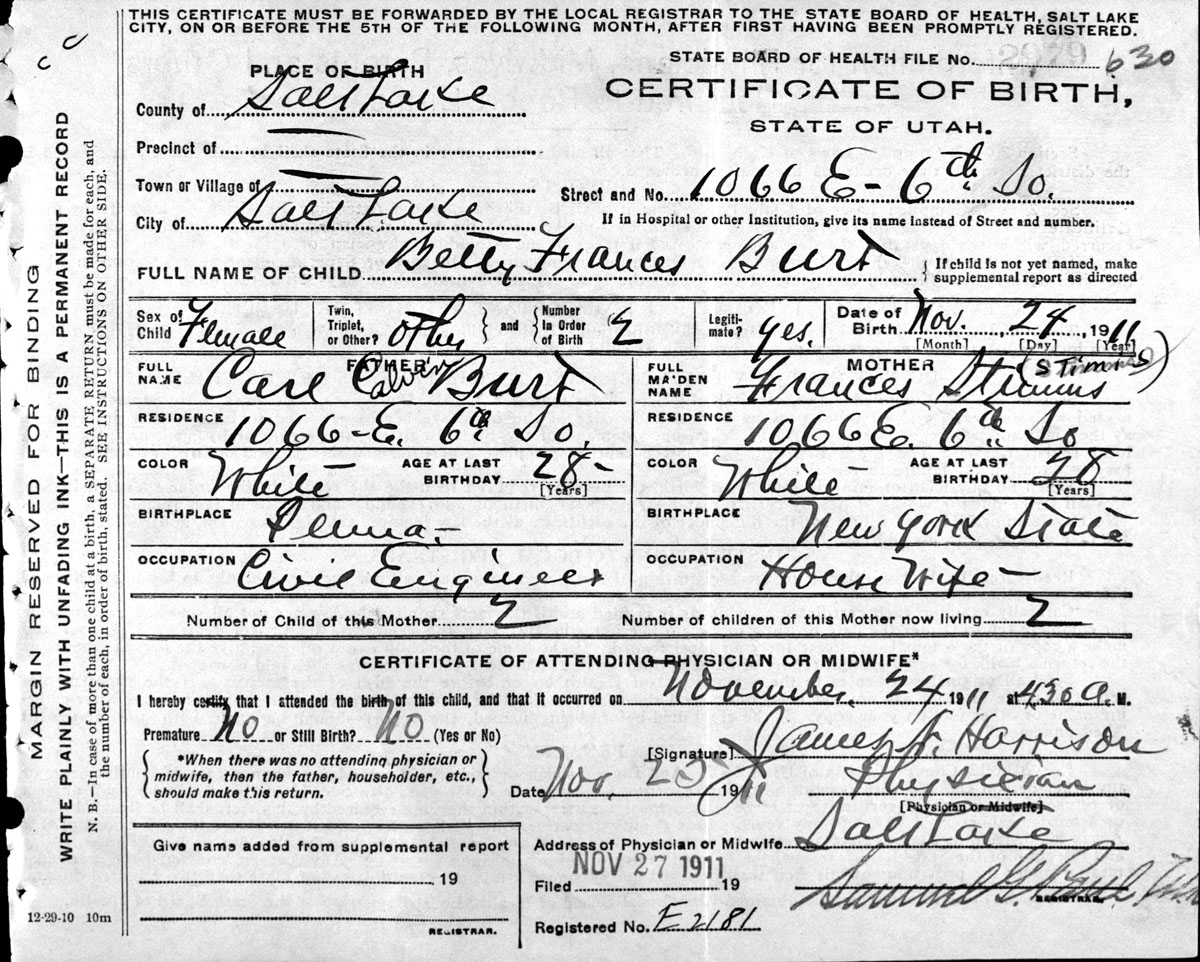 THIS CERTIFICATE MUST BE FORWARDED BY THE LOCAL REGISTRAR TO THE STATE BOARD OF HEALTH, SALT LAKE
CITY, ON OR BEFORE THE 5TH OF THE FOLLOWING MONTH, AFTER FIRST HAVING BEEN PROMPTLY REGISTERED.
STATE BOARD OF HEALTH FILE No. 630
PLACE OF BIRTH
CERTIFICATE OF BIRTH,
County of Salt Lake
STATE OF UTAH.
Precinct of
Town or Village of
Street and No. 1066 E- 6th So.
City of Salt Lake
If in Hospital or other Institution, give its name instead of Street and number.
FULL NAME OF CHILD Betty Frances Burt { If child is not yet named, make supplemental report as directed
Sex of Child Female Twin, Triplet, or Other? other } and { Number in Order of Birth 2 Legiti-mate? yes. Date of Birth Nov. 24, 1911
[Month] [Day] [Year]
FATHER MOTHER (Stimmis)
FULL NAME Carl Calvin Burt FULL MAIDEN NAME Frances
RESIDENCE 1066-E. 6th So. RESIDENCE 1066 E. 6th So
COLOR White AGE AT LAST BIRTHDAY 28- [Years] COLOR White AGE AT LAST BIRTHDAY 28 [Years]
BIRTHPLACE Penna.- BIRTHPLACE New York State
OCCUPATION Civil Engineer OCCUPATION House Wife-
Number of Child of this Mother 2 Number of children of this Mother now living 2
CERTIFICATE OF ATTENDING PHYSICIAN OR MIDWIFE*
I hereby certify that I attended the birth of this child, and that it occurred on November, 24 1911 at 4:30 A. M.
Premature No or Still Birth? No (Yes or No)
[Signature] James F. Harrison
{ *When there was no attending physician or midwife, then the father, householder, etc., should make this return. }
Date Nov. 25 1911 Physician
[Physician or Midwife]
Give name added from supplemental report
Address of Physician or Midwife Salt Lake
NOV 27 1911
19
Filed 19 Samuel G. Paul
REGISTRAR.
REGISTRAR.
Registered No. E2181
12-29-10 10m
MARGIN RESERVED FOR BINDING
WRITE PLAINLY WITH UNFADING INK—THIS IS A PERMANENT RECORD
N. B.—In case of more than one child at a birth, a SEPARATE RETURN must be made for each, and
the number of each, in order of birth, stated. SEE INSTRUCTIONS ON OTHER SIDE.